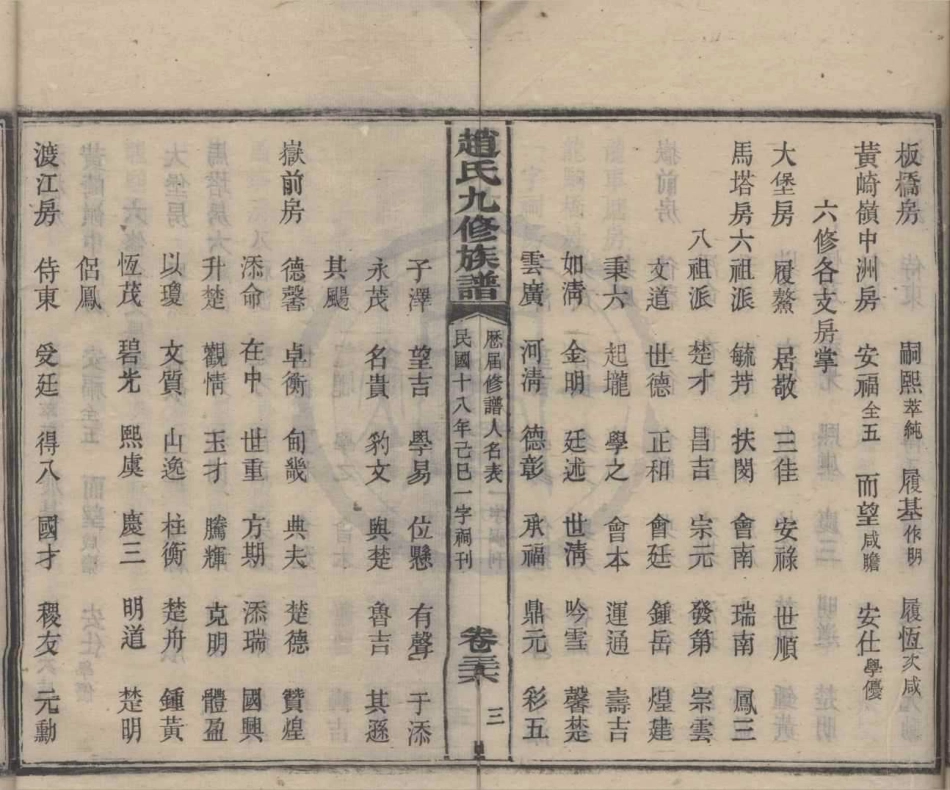 板橋房 嗣熙萃純 履基作明 履恆次咸
黃崎嶺中洲房 安福全五 而望咸瞻 安仕學優
六修各支房掌
大堡房 履鰲 居敬 三佳 安祿 世順
馬塔房六祖派 毓芳 扶閔 會南 瑞南 鳳三
八祖派 楚才 昌吉 宗元 發第 崇雲
文道 世德 正和 會廷 鍾岳 煌建
秉六 起壠 學之 會本 運通 壽吉
如清 金明 廷述 世清 吟雪 馨楚
雲廣 河清 德彰 承福 鼎元 彩五
趙氏九修族譜
歷屆修譜人名表
民國十八年己巳一字祠刊
卷三十六 三
子澤 望吉 學易 位懸 有聲 于添
永茂 名貴 豹文 與楚 魯吉 其遜
其颺
嶽前房 德馨 卓衡 甸畿 典夫 楚德 贊煌
添命 在中 世重 方期 添瑞 國興
升楚 觀情 玉才 騰輝 克明 體盈
以瓊 文質 山逸 柱衡 楚舟 鍾黃
恆茂 碧光 熙虞 慶三 明道 楚明
侶鳳
渡江房 侍東 受廷 得入 國才 稷友 元勳